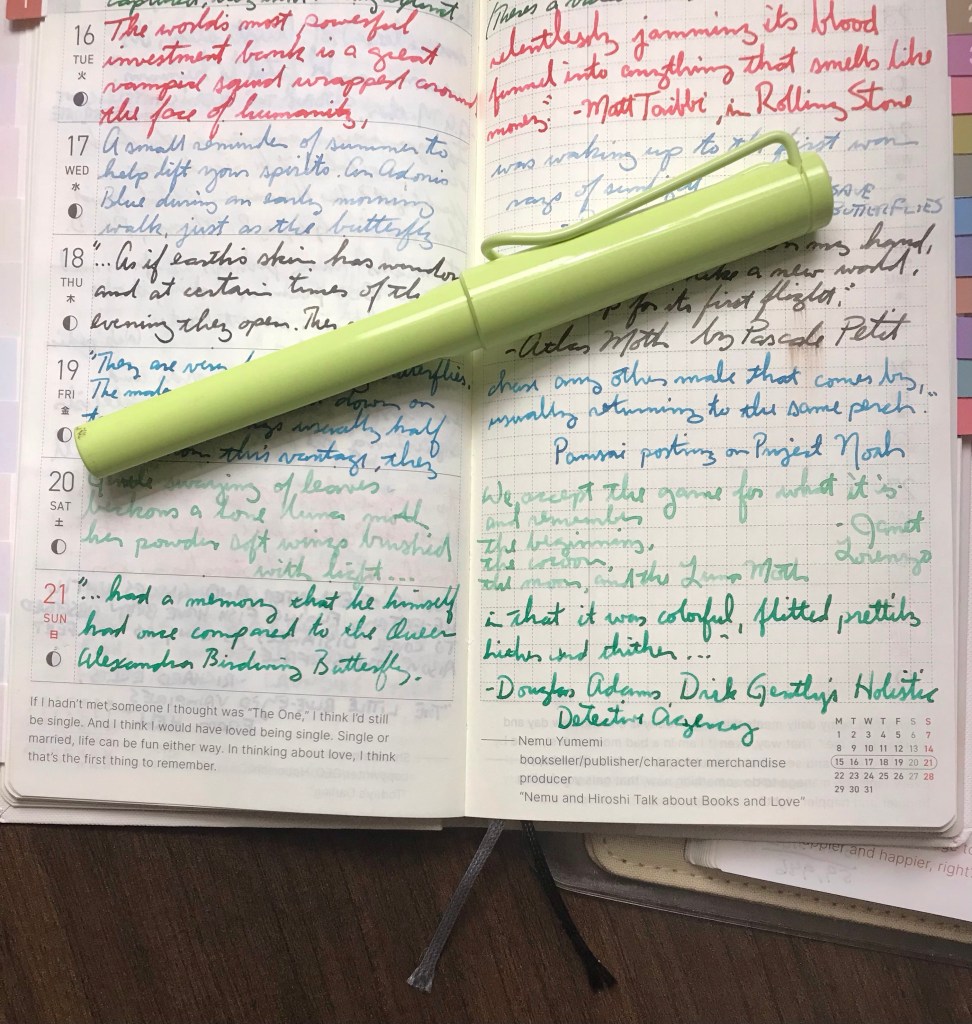 16
TUE
火
The world's most powerful
investment bank is a great
vampid squid wrapped around
the face of humanity,
17
WED
水
A small reminder of summer to
help lift your spirits. An Adonis
Blue during an early morning
walk, just as the butterfly
18
THU
木
"...As if earth's skin has window
and at certain times of the
evening they open. The
19
FRI
金
"They are very butterflies.
The male down on
wings usually half
from this vantage, they
20
SAT
土
Gentle swaying of leaves
beckons a lone luna moth
her powder soft wings brushed
with light...
21
SUN
日
"...had a memory that he himself
had once compared to the Queen
Alexandra Birdwing Butterfly.
If I hadn't met someone I thought was "The One," I think I'd still
be single. And I think I would have loved being single. Single or
married, life can be fun either way. In thinking about love, I think
that's the first thing to remember.
(There's a
relentlessly jamming its blood
funnel into anything that smells like
money." -Matt Taibbi, in Rolling Stone
was waking up to the first warm
rays of sunlight
SAVE
BUTTERFLIES
on my hand,
like a new world,
for its first flight."
-Atlas Moth by Pascale Petit
chase any other male that comes by,
usually returning to the same perch."
posting on Project Noah
We accept the game for what it is
and remember
the beginning,
the cocoon,
the moon, and the Luna Moth
- Janet
Lorenzo
in that it was colorful, flitted prettily
hither and thither..."
-Douglas Adams Dirk Gently's Holistic
Detective Agency
Nemu Yumemi
bookseller/publisher/character merchandise
producer
"Nemu and Hiroshi Talk about Books and Love"
M T W T F S S
1 2 3 4 5 6 7
8 9 10 11 12 13 14
15 16 17 18 19 20 21
22 23 24 25 26 27 28
29 30 31
and happier, right?